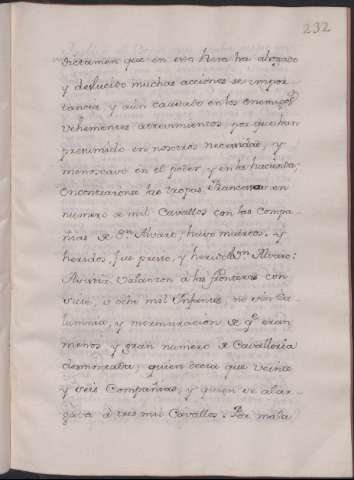 232
dictamen que en esa Hera ha ahogado
y deslucido muchas acciones de impor-
tancia, y aún causado en los enemigos
vehementes atrevimientos, por que han
presumido en nosotros necesidad, y
menoscavo en el poder, y en la hacienda;
encontraronse las tropas Francesas en
numero de mil Cavallos con las Compa-
ñias de Dn. Alvaro; huvo muertos, y
heridos, fue preso, y herido Dn. Alvaro:
Asistia Balanzon à las fronteras con
siete, ù ocho mil Infantes, no sin ca-
lumnia, y murmuracion de qe. eran
menos y gran numero de Cavalleria
desmontada; quien decia que veinte
y seis Compañias, y quien se alar-
gava à tres mil Cavallos. Por mala